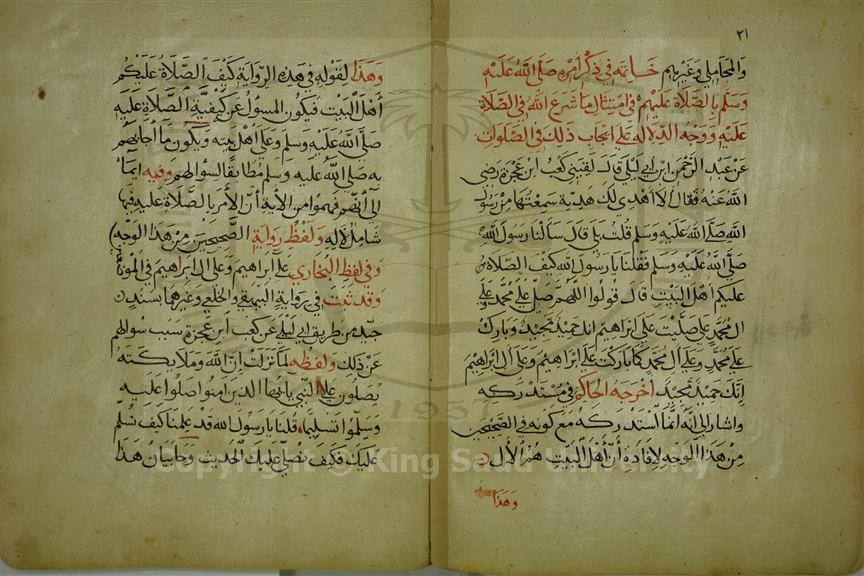 ٢١
والمحاملي وغيرهم خاتمه في ذكر امره صلى الله عليه
وسلم بالصلاة عليهم في امتثال ما شرع الله في الصلاة
عليه ووجه الدلالة على ايجاب ذلك في الصلوات
عن عبد الرحمن ابن ابي ليلى قال لقيني كعب ابن عجرة رضي
الله عنه فقال الا اهدي لك هدية سمعتها من رسول
الله صلى الله عليه وسلم قلت بلى قال سالنا رسول الله
صلى الله عليه وسلم فقلنا يا رسول الله كيف الصلاة
عليكم اهل البيت قال قولوا اللهم صل على محمد وعلى
ال محمد كما صليت على ابراهيم انك حميد مجيد وبارك
على محمد وعلى ال محمد كما باركت على ابراهيم وعلى ال ابراهيم
انك حميد مجيد اخرجه الحاكم في مستدركه
واشار الى انه انما استدركه مع كونه في الصحيحين
من هذا الوجه لافادة ان اهل البيت هم الال
وهذا
وهذا لقوله في هذه الرواية كيف الصلاة عليكم
اهل البيت فيكون المسؤل عن كيفية الصلاة عليه
صلى الله عليه وسلم وعلى اهل بيته ويكون ما اجابهم
به صلى الله عليه وسلم مطابقا لسؤالهم وفيه ايماء
الى انهم فهموا من الاية ان الامر بالصلاة عليه فيها
شامل لاله ولفظ رواية الصحيحين من هذا الوجه
وفي لفظ البخاري على ابراهيم وعلى ال ابراهيم في الموضعين
وقد ثبت في رواية البيهقي والخلعي وغيرهما بسند
جيد من طريق ابي ليلى عن كعب ابن عجرة سبب سوالهم
عن ذلك ولفظه لما نزلت ان الله وملائكته
يصلون على النبي يا ايها الذين امنوا صلوا عليه
وسلموا تسليما قلنا يا رسول الله قد علمنا كيف نسلم
عليك فكيف نصلي عليك الحديث وجا بيان هذا
Copyright © King Saud University
1957